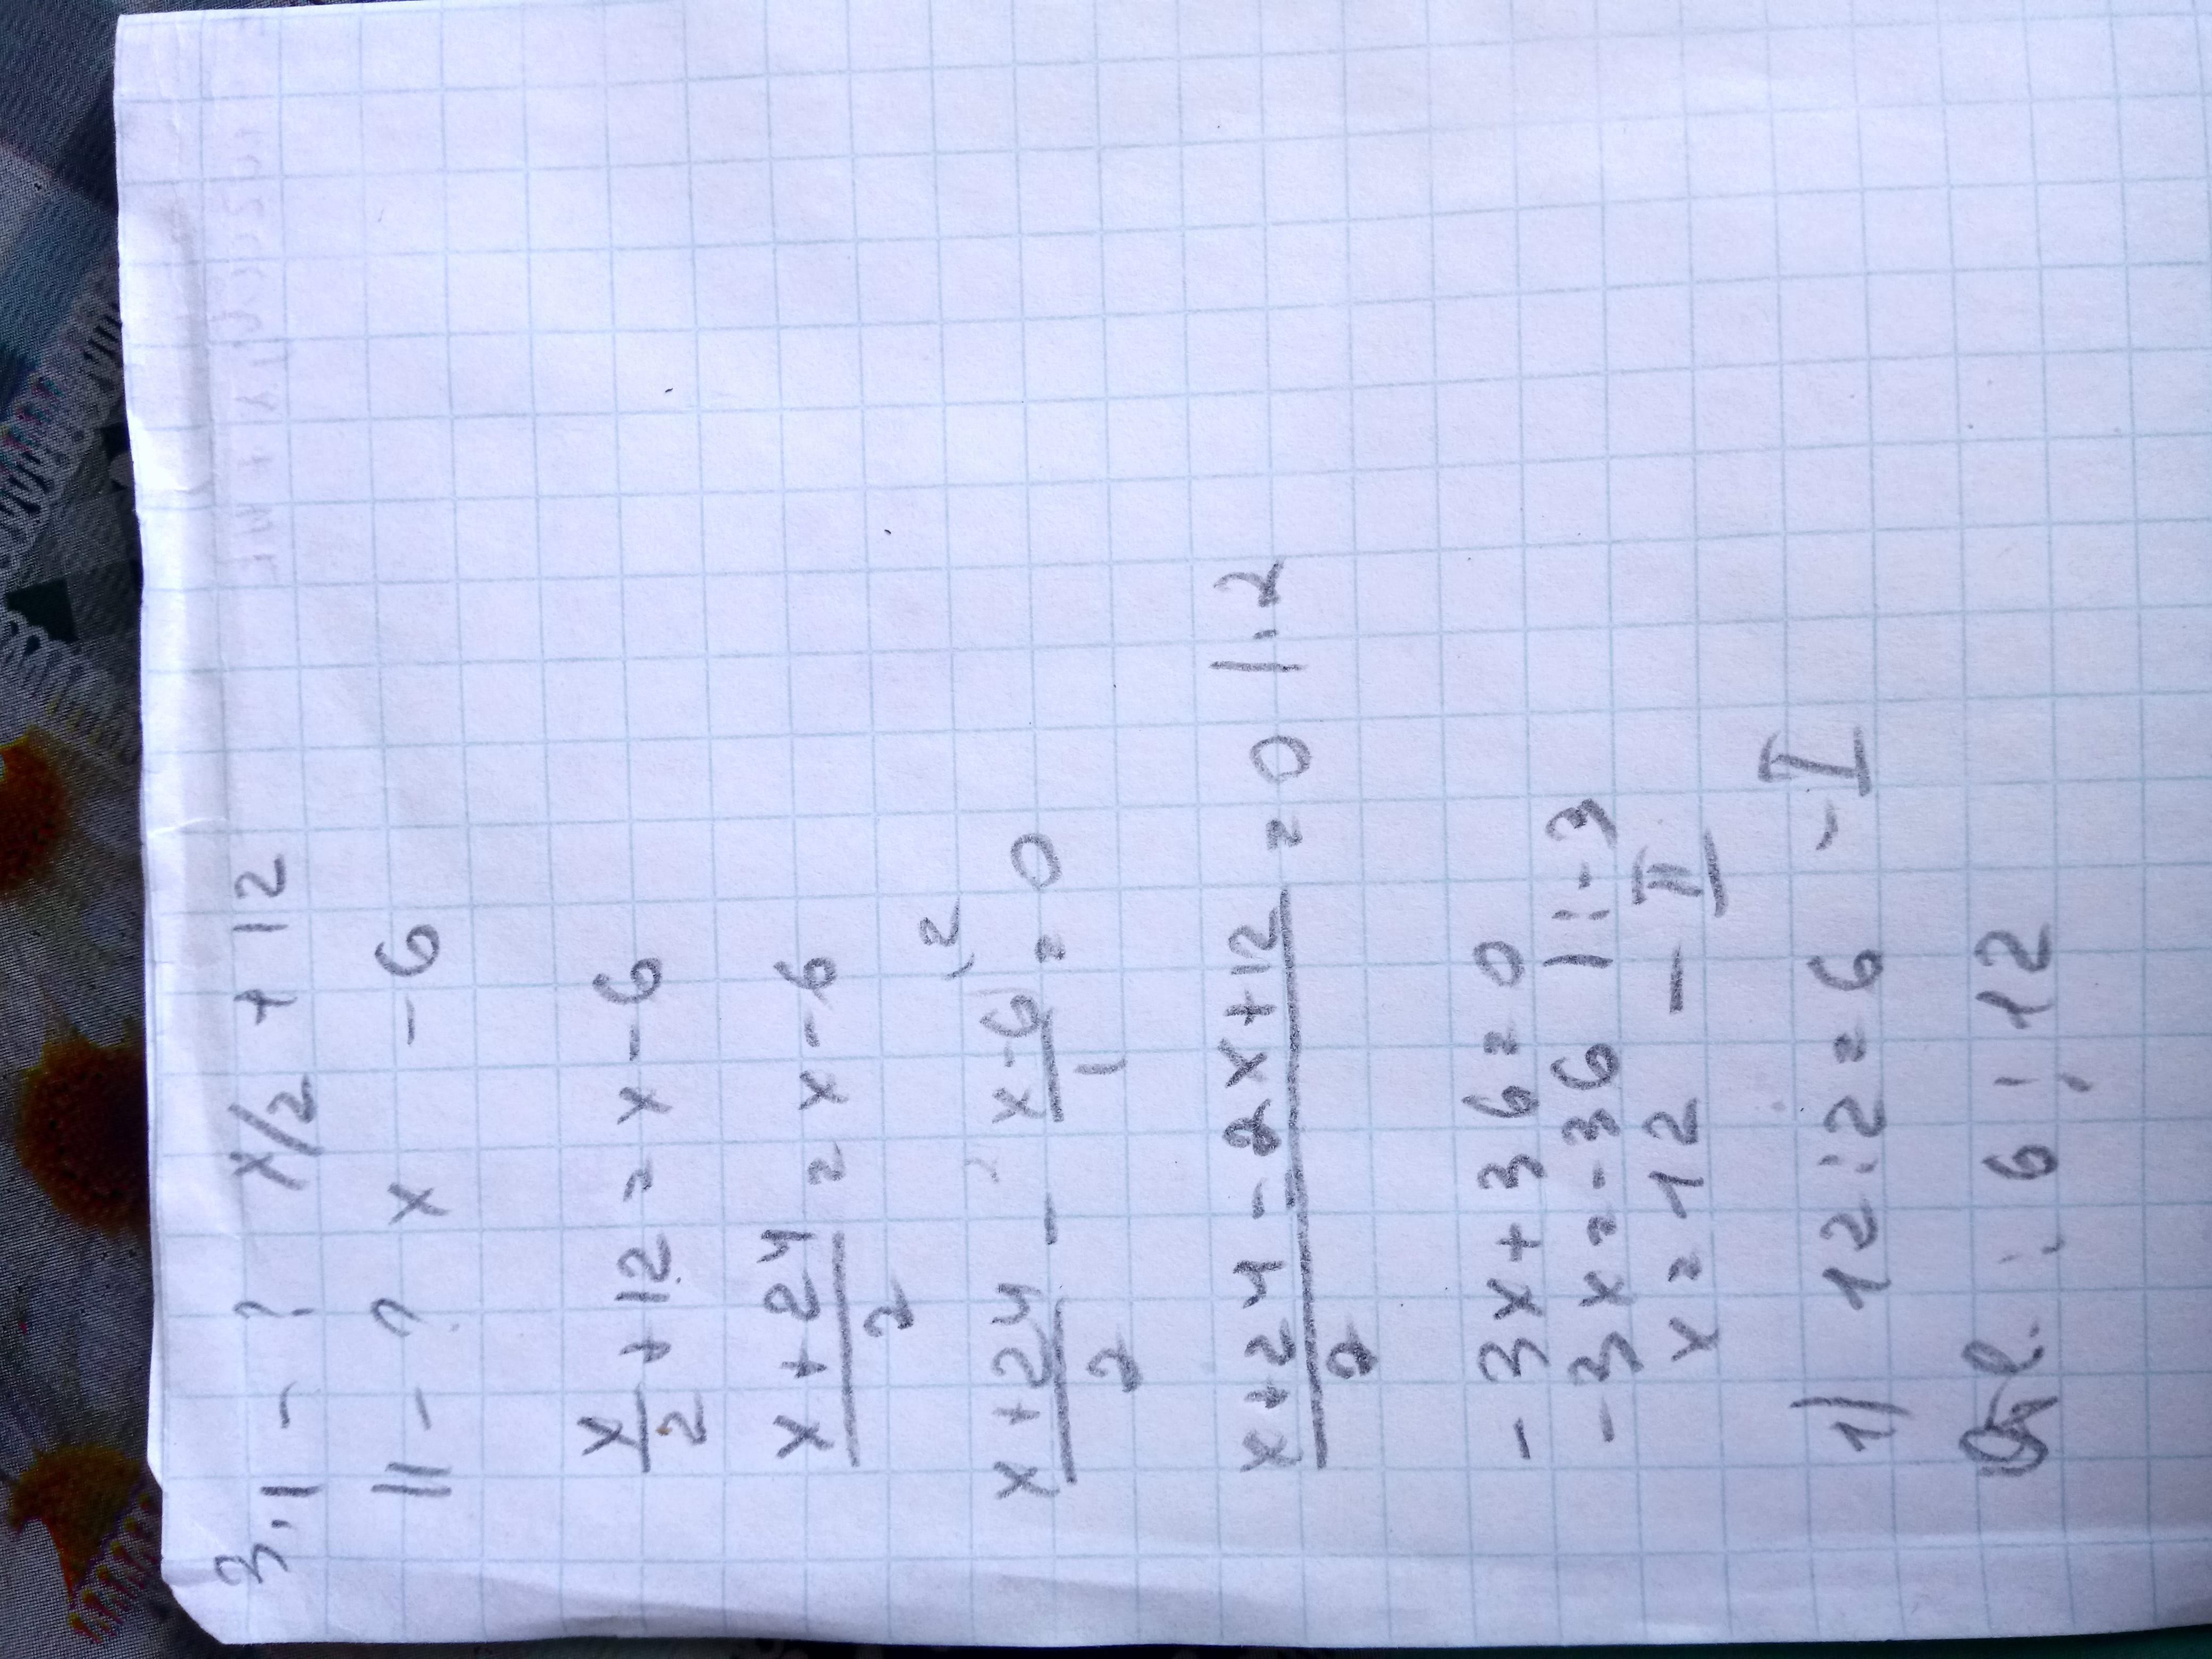 3. I - ? x/2 + 12
II - ? x - 6
x/2 + 12 = x - 6
x+24/2 = x - 6
x+24/2 - x-6/1 \2 = 0
x+24-2x+12/2 = 0 |·2
-3x+36=0
-3x=-36 |:-3
x=12 - II
1) 12:2=6 - I
: 6; 12